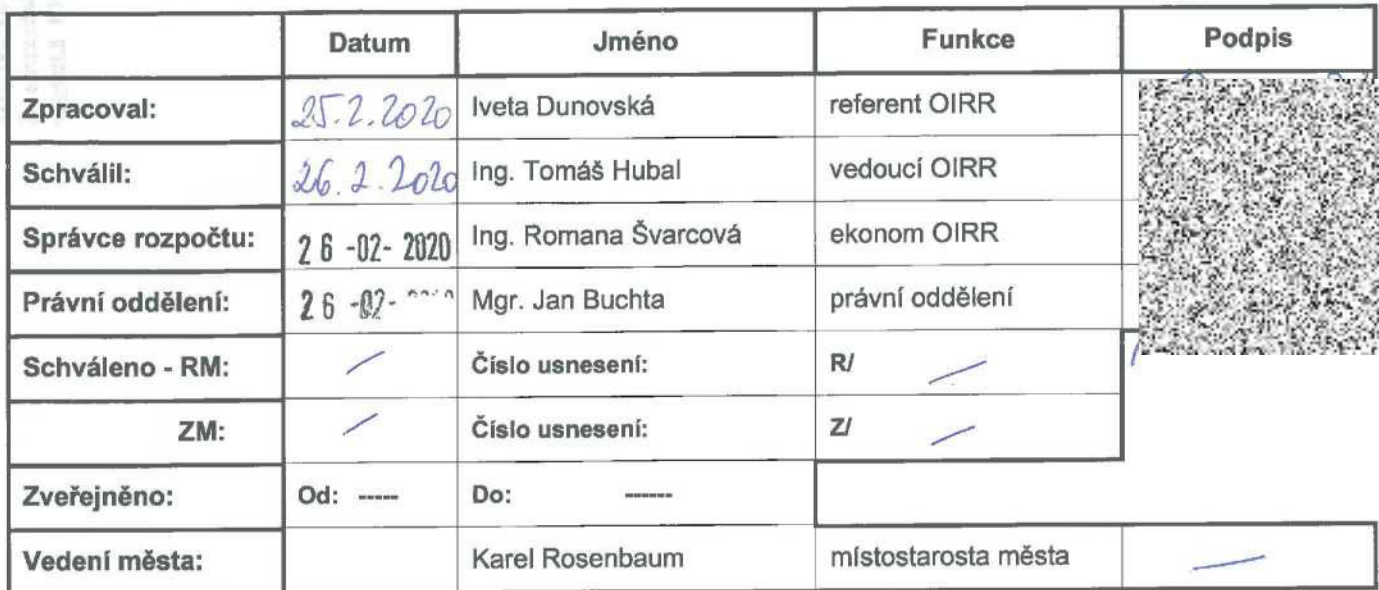 Datum Jméno Funkce Podpis
Zpracoval: 25.2.2020 Iveta Dunovská referent OIRR
Schválil: 26.2.2020 Ing. Tomáš Hubal vedoucí OIRR
Správce rozpočtu: 26 -02- 2020 Ing. Romana Švarcová ekonom OIRR
Právní oddělení: 26 -02- Mgr. Jan Buchta právní oddělení
Schváleno - RM: / Číslo usnesení: R/ /
ZM: / Číslo usnesení: Z/ /
Zveřejněno: Od: ----- Do: ------
Vedení města: Karel Rosenbaum místostarosta města /